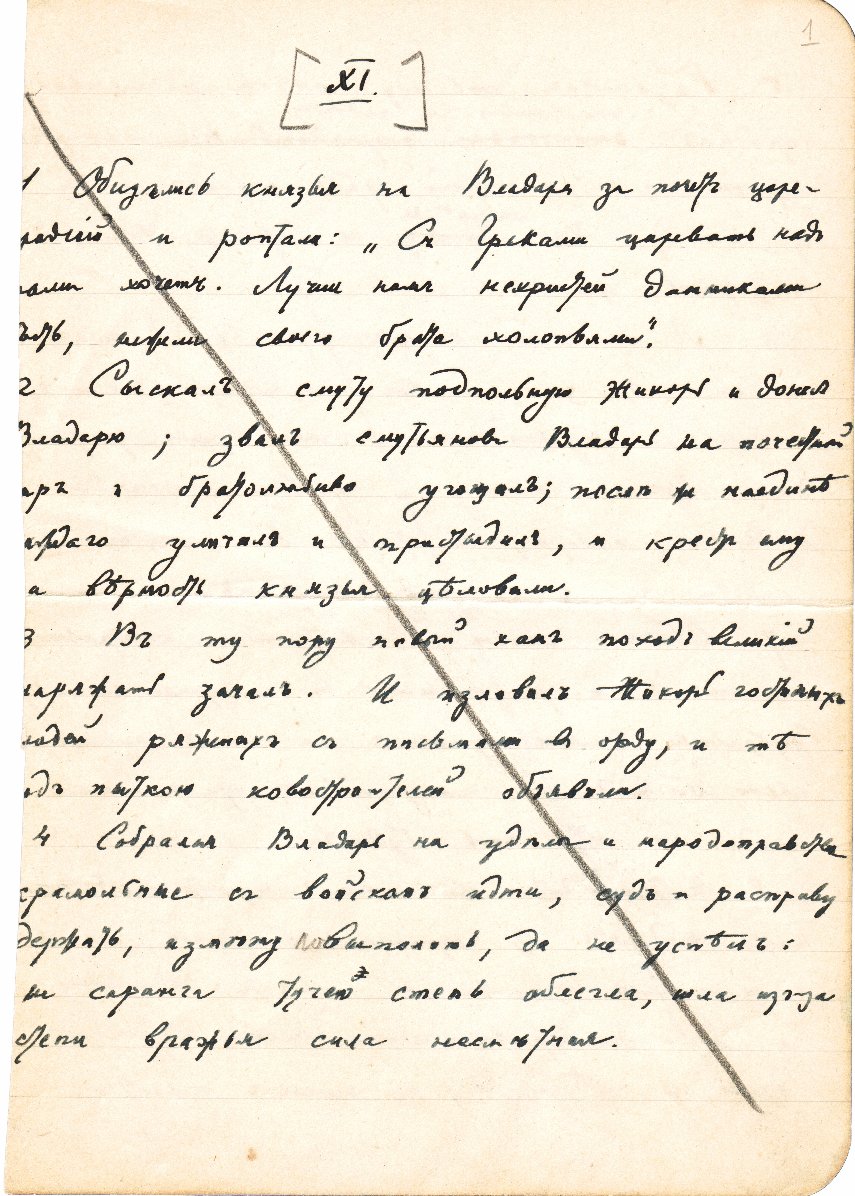 1
[XI.]
1 Обидѣлись князья на Владаря за почетъ царе-
градскій и роптали: „Съ Греками царевать надъ
нами хочетъ. Лучше намъ нехристей данниками
быть, нежели своего брата холопьями“.
2 Сыскалъ смуту подпольную Жихорь и донесъ
Владарю; звалъ смутьяновъ Владарь на почестной
пиръ и братолюбиво угощалъ; послѣ же наединѣ
каждаго уличилъ и пристыдилъ, и крестъ ему
на вѣрность князья цѣловали.
3 Въ ту пору новый ханъ походъ великій
наряжать зачалъ. И изловилъ Жихорь гостиныхъ
людей ряженыхъ съ письмами въ орду, и тѣ
подъ пыткою ковостроителей объявили.
4 Собрался Владарь на удѣлы и народоправства
крамольные съ войскомъ идти, судъ и расправу
держать, измѣну выполоть, да не успѣлъ:
саранча тучею степь облегла, шла изъ-за
степи вражья сила несмѣтная.